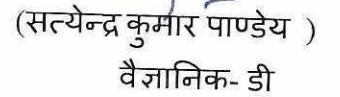 (सत्येन्द्र कुमार पाण्डेय )
वैज्ञानिक- डी